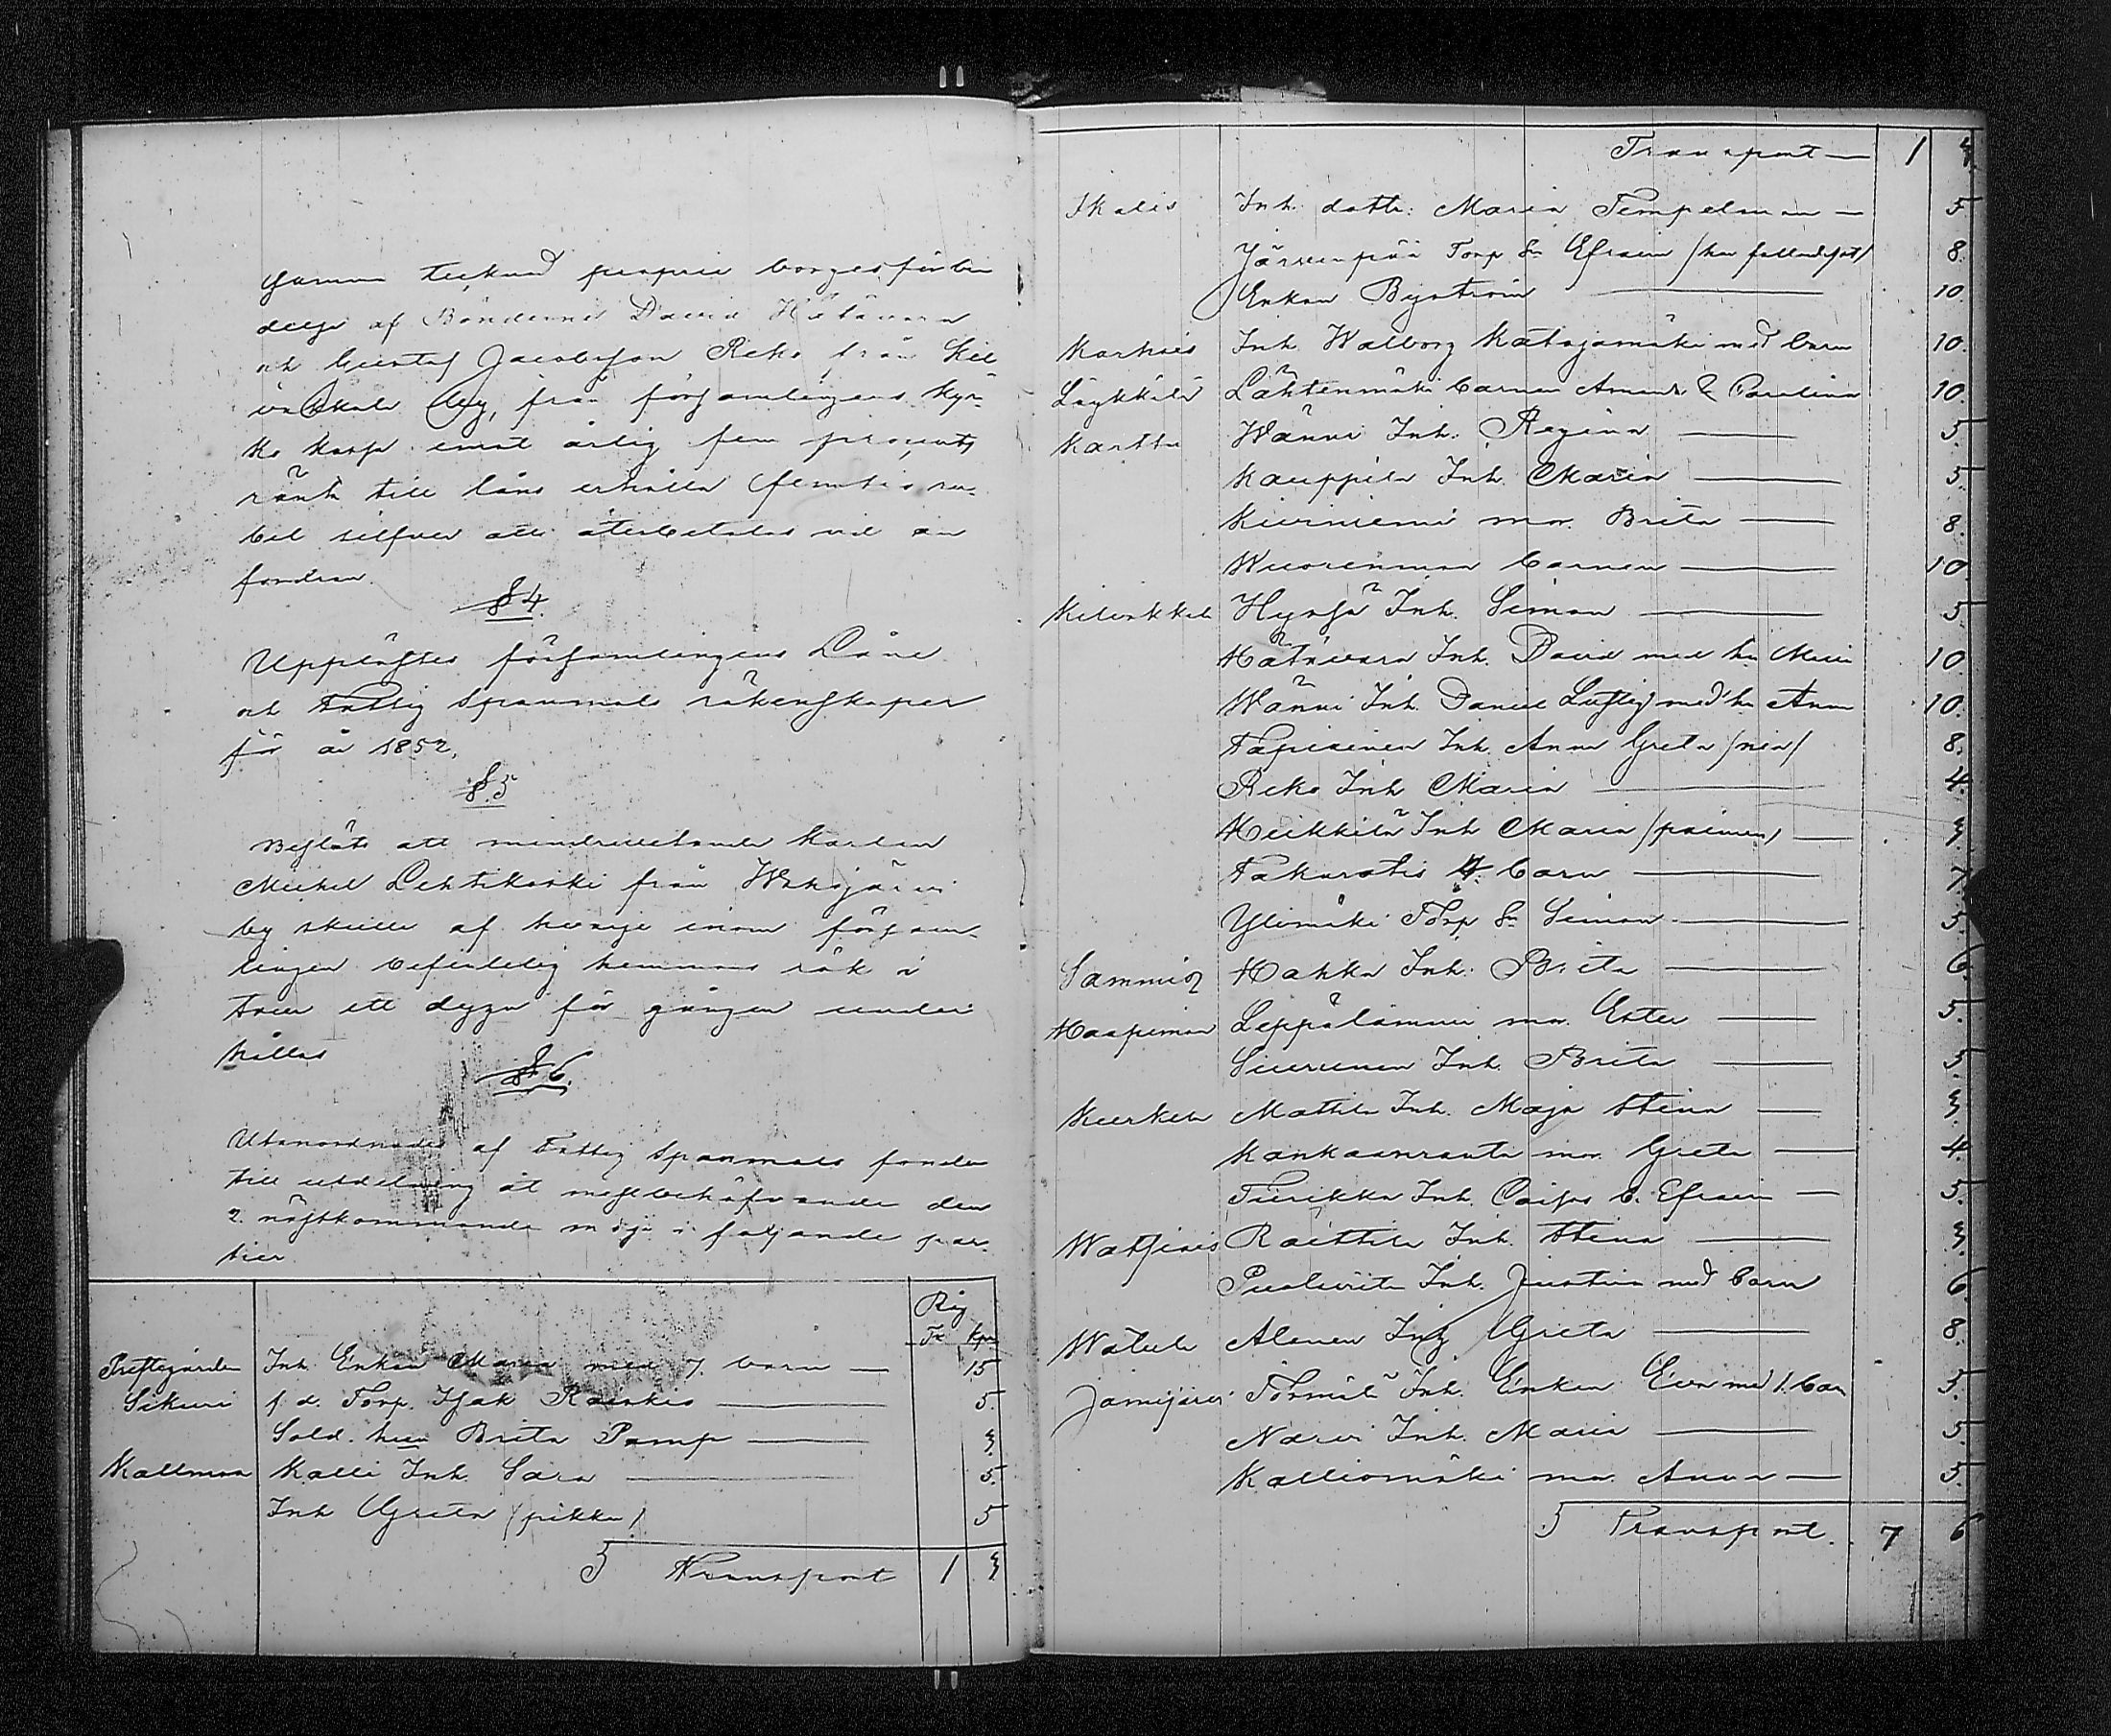 samma tecknad proprie borgesförbin
delse af Bönderne David Hätävara
och Gustaf Jacobsson Reko från Kil
vakkala by, från församlingens Kyr-
ko kassa emot årlig fem procents
ränta till låns erhålla femtio ru-
bel silfver att återbetalas vid an
fordran.
§ 4.
Upplästes församlingens Låne
och Fattig Spanmåls räkenskaper
för år 1852.
§ 5
Beslöts att mindrevetande karlen
Michel Lehtikoski från Wahojärvi
by skulle af hvarje inom försam-
lingen befintelig hemmans rök i
tour ett dygn för gången under
hållas
§ 6.
Utanordnades af Fattig Spanmåls fonden
till utdelning åt mest behöfvande den
2. nästkommande maji i följande par-
tier
Råg
Tr Kpr
Prestegården Inh. Enkan Maria med 7. barn — 15
Sikuri f. d. Torp. Isak Raiskio — 5.
Sold. hu Brita Pamp — 3.
Kallmaa Kalli Inh. Sara — 5.
Inh Greta (pikku) 5
5 Transport 1 3
Transport — 1 3.
Ikalis Inh. dottr: Maria Tempelman — 5
Järvenpää Torp. Sn Efraim /har fallandsot/ 8.
Enkan Byström — 10.
Karhois Inh. Walborg Katajamäki med barn 10.
Läykkälä Lähtenmäki barnen Amanda & Carolina 10.
Karttu Wänni Inh. Regina — 5
Kauppila Inh. Maria — 5.
Kiviniemi mor. Brita — 8.
Wuorenmaa barnen — 10
Kilvakkala Hynsä Inh. Simon — 5
Hätävara Inh. David med hu Maria 10.
Wänni Inh. Daniel Lustig med hu Anna 10.
Tapiainen Inh. Anna Greta 8.
Reko Inh Maria — 4.
Heikkilä Inh Maria /paimen/ — 3.
Takuratis 4. barn — 7
Ylimäki Torp Sn Simon — 5.
Sammi Hakka Inh: Brita — 6
Haapimaa Leppälammi mor. Ester — 5.
Siurunen Inh. Brita — 5.
Kurkela Mattila Inh. Maja Stina — 3.
Kankaanranta mor. Greta — 4.
Tiurikka Inh. Caisas b. Efraim — 5.
Watsiais Raittila Inh. Stina — 3.
Inh. Justina med barn 6.
Watula Alanen Inh Greta — 8.
Jämijärvi Tormilä Inh. Enkan Eva med 1. barn 5.
Narvi Inh. Maria — 5.
Kalliomäki mor Anna — 5.
5 Transport. 7 6